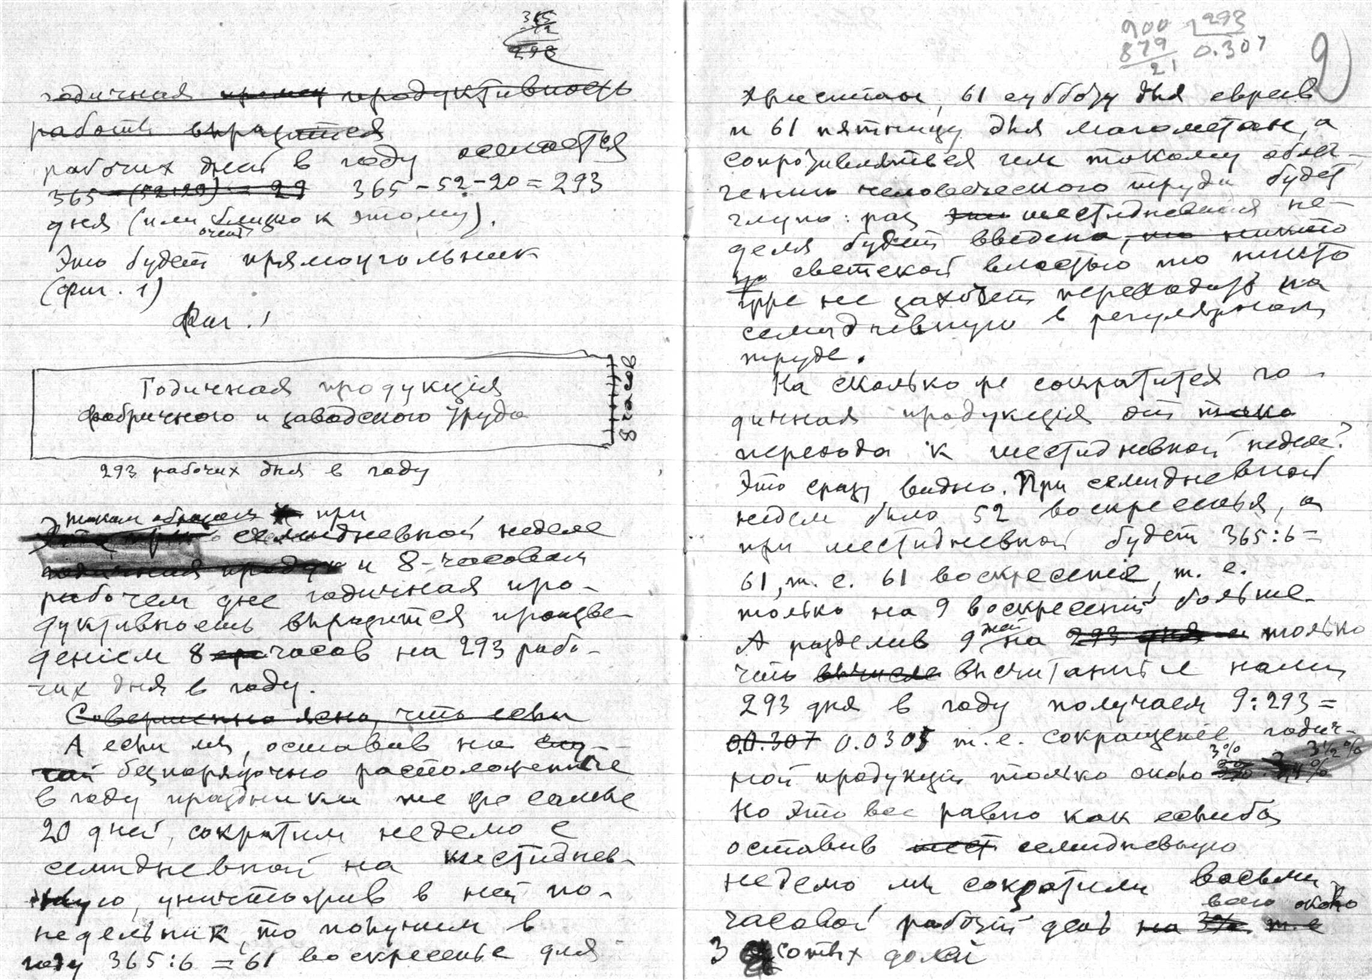 365
12
293
годичная продуктивность
работы выразится
рабочих дней в году остается
365 - (52+20) = 29 365 - 52 - 20 = 293
дня (или очень близко к этому).
Это будет прямоугольник
(фиг. 1)
Фиг. 1
Годичная продукція
фабричного и заводского труда
8 часов
293 рабочих дня в году
таким образом при
семидневной неделе
годичная проду и 8-часовом
рабочем дне годичная про-
дуктивность выразится произве-
деніем 8 часов на 293 рабо-
чих дня в году.
Совершенно ясно, что если
А если мы, оставив на
безпорядочно расположенные
в году праздники те же самые
20 дней, сократим неделю с
семидневной на шестиднев-
ную, уничтожив в ней по-
недельник, то получим в
году 365:6 = 61 воскресенье для
900 293
879 0.307
21
9
христіан, 61 субботу для евреев
и 61 пятницу для магометан, а
сопротивляться чем такому облег-
чению человеческого труда будет
глупо: раз шестидневная не-
деля будет введена, что никто
светской властью то никто
уже не захочет переходить на
семидневную в регулярном
труде.
На сколько же сократится го-
дичная продукція от
перехода к шестидневной неделе?
Это сразу видно. При семидневной
неделе было 52 воскресенья, а
при шестидневной будет 365:6=
61, т. е. 61 воскресеніе, т. е.
только на 9 воскресений больше.
А разделив 9 дней на 293 дня и только
что вычисле высчитанные нами
293 дня в году получаем 9:293=
00.307 0.0305 т. е. сокращеніе годич-
ной продукціи только около 3% 3 3½%
Но это все равно как если бы
оставив шест семидневную
неделю мы сократили восьми-
часовой рабочій день на 3% т. е всего около
3 сотых долей